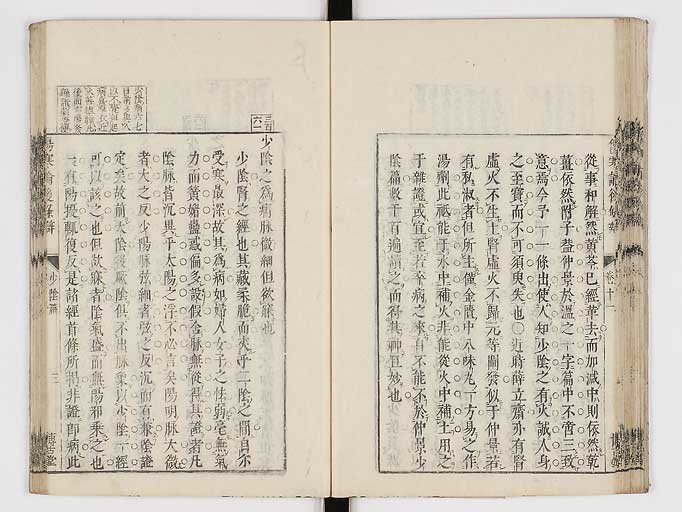 從事和解然黃芩已經革去而加減中則依然乾
薑依然附子葢仲景於溫之一字篇中不啻三致
意焉今予一一條出使人知少陰之有火誠人身
之至寶而不可須臾失也○近時薛立齋亦有腎
虛火不生土腎虛火不歸元等闡發似于仲景若
有私淑者但所主僅金匱中八味丸一方易之作
湯劑此祗能于水中補火非能從火中補土用之
于雜證或宜至若卒病之來自不能不於仲景少
陰篇數十百遍讀之而得其神且妙也
卷十二
三百
六一
少陰之為病脉微細但欲寐也
少陰腎之經也其藏柔脆而夾乎二陰之間自不
受寒最深故其為病如婦人女子之怯弱毫無氣
力而黃媚蠱或偏多設假合脉無從得其證者凡
陰脉皆沉異乎太陽之浮不必言矣陽明脉大微
者大之反少陽脉弦細者弦之反沉而有兼陰證
定矣故前太陰後厥陰俱不出脉象以少陰一經
可以該之也但欲寐者陰氣盛而無陽邪乘之也
少陰篇
三